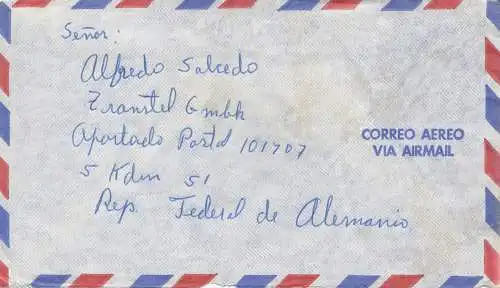 Señor:
Alfredo Salcedo
Transtel Gmbh
Apartado Postal 101707
5 Koln 51
Rep. Federal de Alemania
CORREO AEREO
VIA AIRMAIL